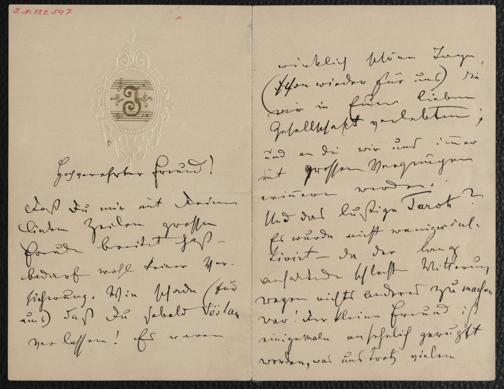 J. N. 122.547
J
Hochverehrter Freund!
Daß Du mir mit Deinen
lieben Zeilen grosse
Freude bereitet hast –
bedarf wohl keiner Ver-
sicherung. Wie schade (für
uns) daß Du sobald Vöslau
verlassen! Es waren
wirklich schöne Tage,
(schon wieder für uns) die
wir in Eurer lieben
Gesellschaft verlebten,
und an die wir uns immer
mit grossem Vergnügen
erinnern werden.
Und das lustige Tarok?
Es wurde nicht wenig
– da der lang
anhaltende schlechte Witterung
wegen nichts anderes zu machen
war! Der kleine Freund ist
einigemale ansehnlich gerupft
worden, was uns trotz vielen